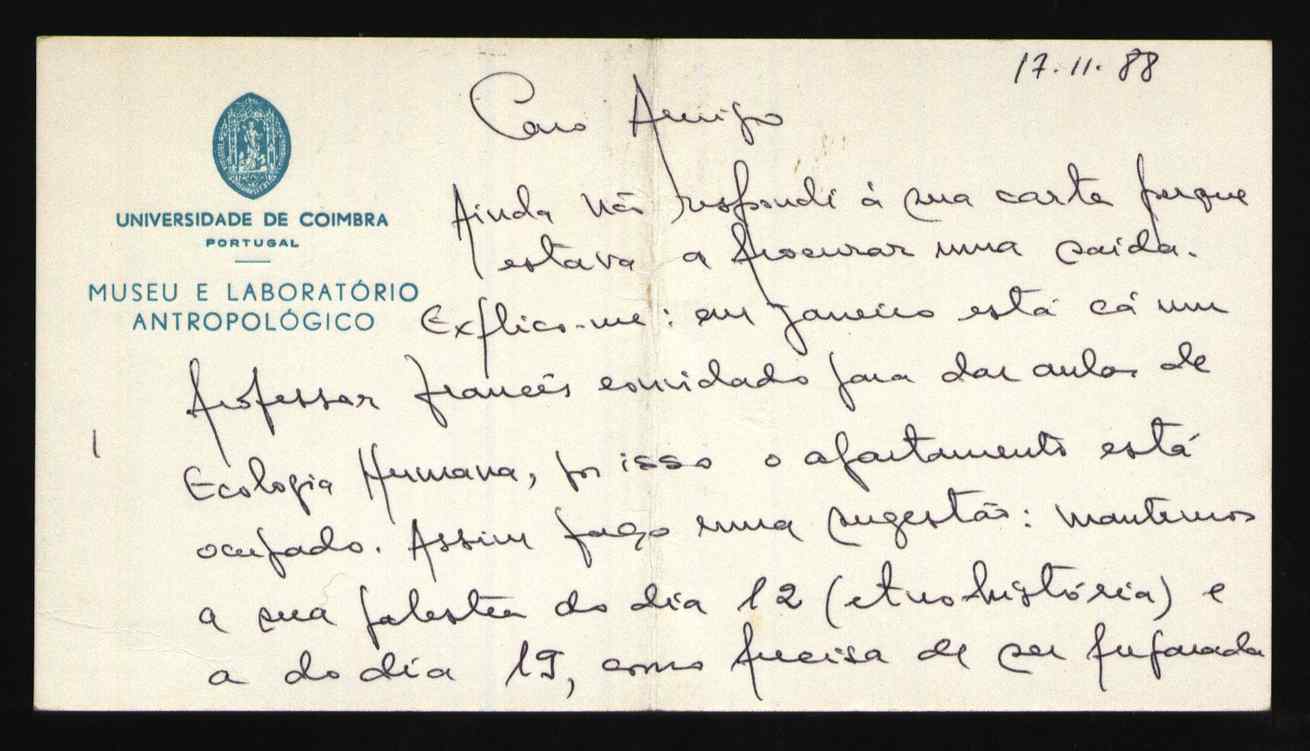 17.11.88
UNIVERSIDADE DE COIMBRA
PORTUGAL
MUSEU E LABORATÓRIO
ANTROPOLÓGICO
Caro Amigo
Ainda não respondi à sua carta porque
estava a procurar uma saída.
Explico-me: em Janeiro está cá um
Professor francês convidado para dar aulas de
Ecologia Humana, por isso o apartamento está
ocupado. Assim faço uma sugestão: mantemos
a sua palestra do dia 12 (etnohistória) e
a do dia 19, como precisa de ser preparada